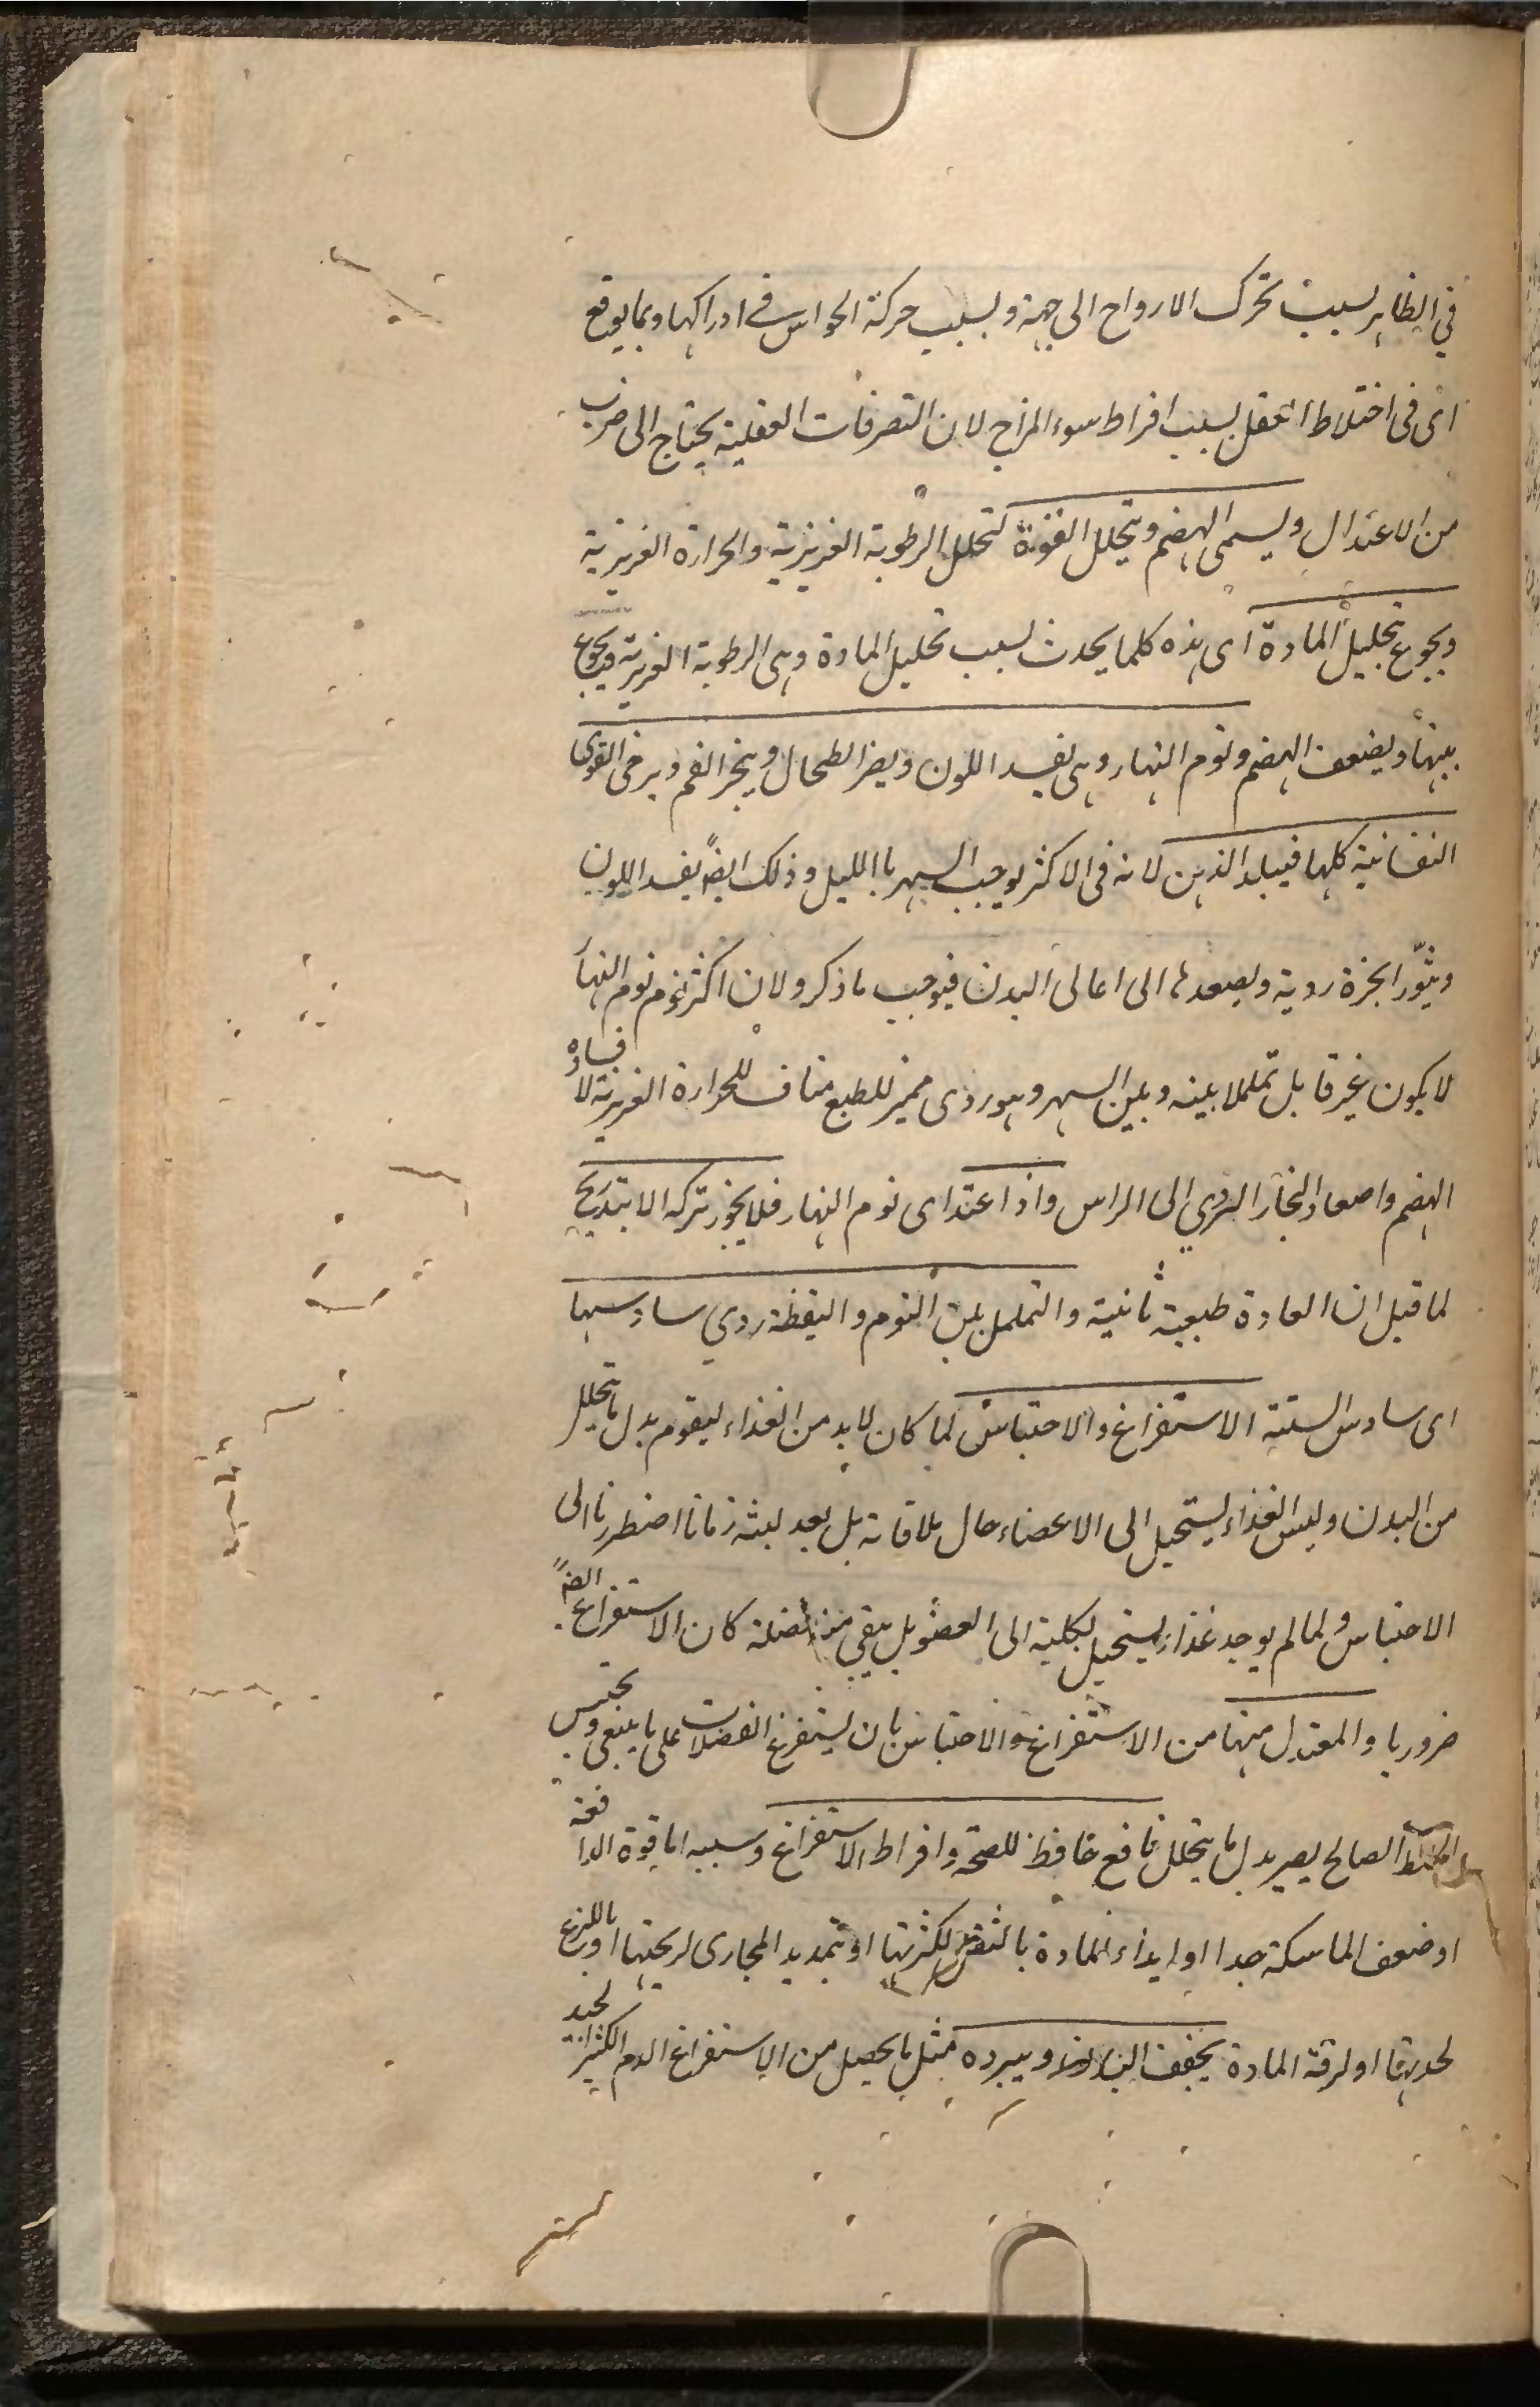 في الظاهر لسبب تحرك الارواح الى جهة ولسبب حركة الحواس في ادراكها وبما يوقع
اى فى اختلاط العقل بسبب افراط سوء المزاج لان التصرفات العقلية يحتاج الى ضرب
من الاعتدال ويسمى الهضم ويتحلل القوة لتحلل الرطوبة الغريزية والحرارة الغريزية
ويجوع بتحليل المادة اى هذه كلما يحدث بسبب تحليل المادة وهى الرطوبة الغريزية ويجوع
بينها ويضعف الهضم ونوم النهار وهى يفسد اللون ويضر الطحال ويبخر الفم ويرخى القوى
النفسانية كلها فيبلد الذهن لانه فى الاكثر يوجب السهر باالليل وذلك ايضً يفسد اللون
ويثوّر ابخرة ردية ويصعدها الى اعالى البدن فيوجب ما ذكر ولان اكثر نوم نوم النها
لا يكون غير قابل تململا بينه وبين السهر وهو ردى مميز للطبع مناف للحرارة الغريزية لا فساده
الهضم واصعاد البخار الردي الى الراس واذا اعتد اى نوم النهار فلا يجوز تركه الا بتدريج
لما قيل ان العادة طبيعية ثانية والتململ بين النوم واليقظة ردي سادسها
اى سادس الستة الاستفراغ والاحتباس لما كان لابد من الغذاء ليقوم بدل ما يتحلل
من البدن وليس الغذاء يستحيل الى الاعضاء حال ملاقاته بل بعد لبثه زمانا اضطررنا الى
الاحتباس ولما لم يوجد غذاء يستحيل بكلية الى العضو بل يبقى منه فضلة كان الاستفراغ ايضً
ضروريا والمعتدل منها من الاستفراغ والاحتباس بان يستفرغ الفضلات على ما ينبغى ويحتبس
الخلط الصالح يصير بدل ما يتحلل نافع حافظ للصحة وافراط الاستفراغ وسببه اما قوة الدافعة
او ضعف الماسكة جدا او ايذاء المادة بالثقل لكثرتها او بتمديد المجارى لريحتها او باللذع
لحدتها او لرقة المادة يجفف البدن ويبرده مثل ما يحصل من الاستفراغ الدم الكثير